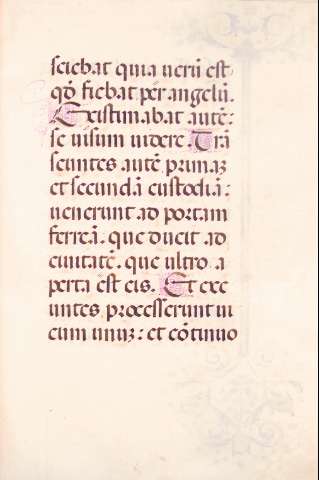 sciebat quia uerũ est
qđ fiebat per angelũ.
Existimabat autẽ:
se uisum uidere. Trã
seuntes autẽ primaꝫ
et secundã custodiã:
uenerunt ad portam
ferreã. que ducit ad
ciuitatẽ. que ultro a
perta est eis. Et exe
untes processerunt ui
cum unuꝫ: et cõtinuo